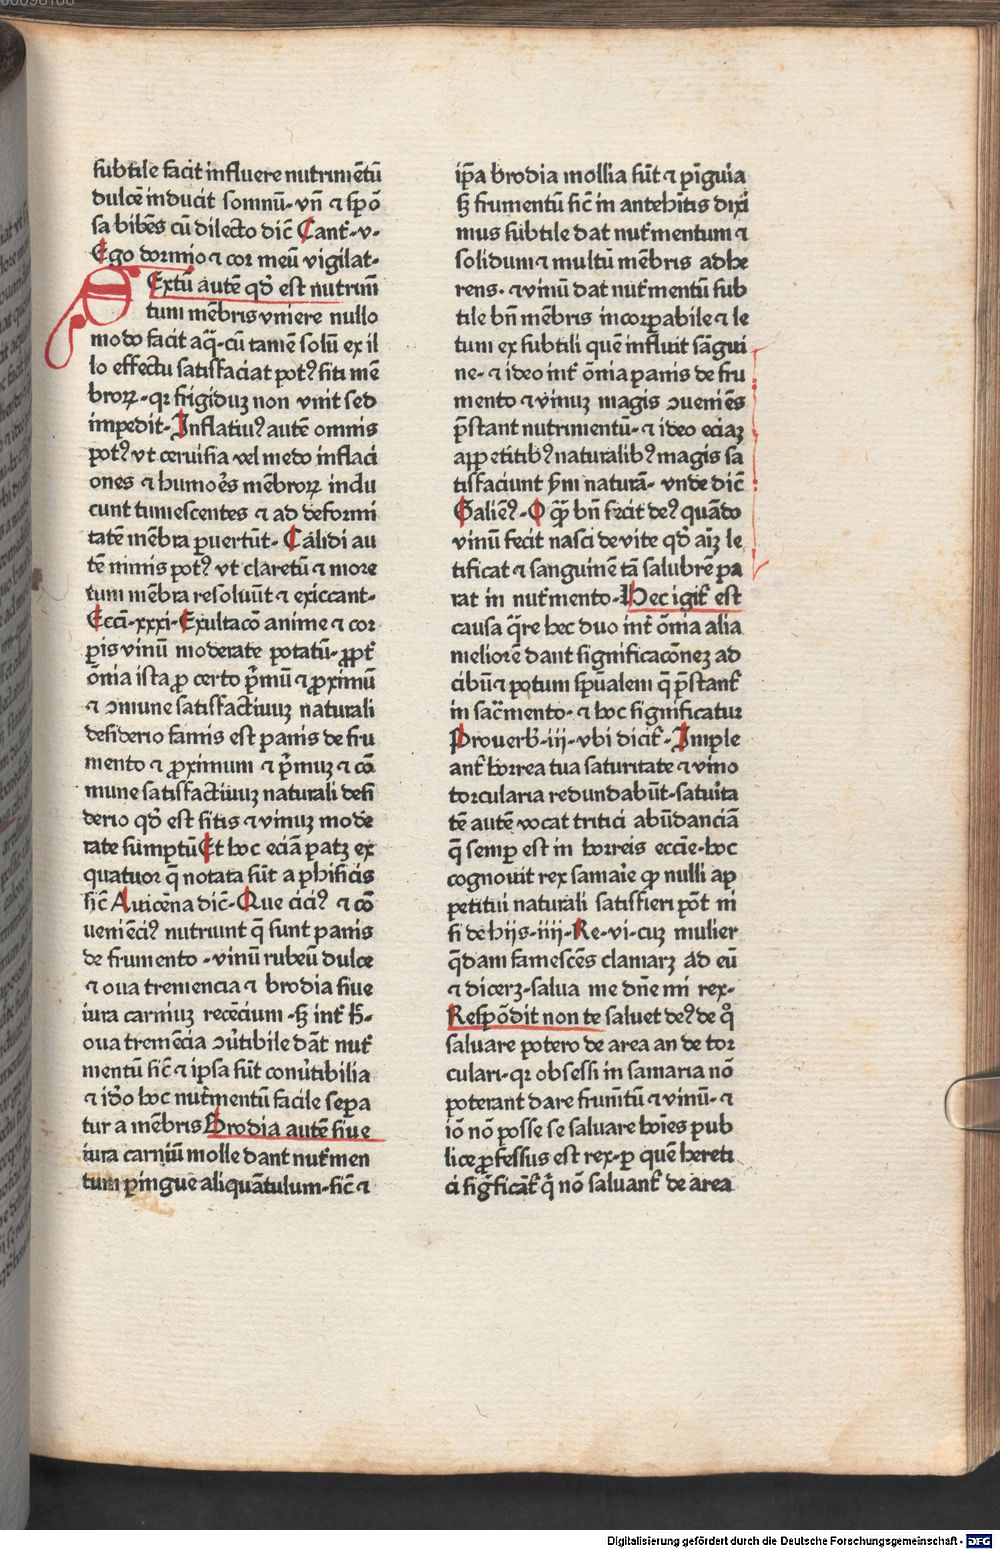 subtile facit influere nutrimẽtũ
dulcẽ inducit somnũ· vñ ⁊ spõ
sa bibẽs cũ dilecto dic̃ Cant̃·v·
Ego dormio ⁊ cor meũ vigilat·
Textũ autẽ qđ est nutrim̃
tum mẽbris vniere nullo
modo facit aq̃·cũ tamẽ solũ ex il
lo effectu satisfaciat potꝰ siti mẽ
broꝝ·qr frigiduz non vnit sed
impedit·Inflatiuꝰ autẽ omnis
potꝰ vt ceruisia vel medo inflaci
ones ⁊ humo͛es mẽbroꝝ indu
cunt tumescentes ⁊ ad deformi
tatẽ mẽbra ꝑuertũt· Calidi au
tẽ nimis potꝰ vt claretũ ⁊ more
tum mẽbra resoluũt ⁊ exiccant·
Ecci̅·xxxi·Exultacõ anime ⁊ cor
ꝑis vinũ moderate potatũ·ꝓpt̃
õnia ista ꝓ certo p̃mũ ⁊ ꝓximũ
⁊ ꝯmune satisfactiuuz naturali
desiderio famis est panis de fru
mento ⁊ ꝓximum ⁊ p̃muz ⁊ cõ
mune satisfactiuuz naturali desi
derio qđ est sitis ⁊ vinuz mode
rate sumptũ Et hoc eciã patz ex
quatuor q̃ notata sũt a phisicis
sic̃ Auicẽna dic̃·Que ciciꝰ ⁊ cõ
ueniẽciꝰ nutriunt q̃ sunt panis
de frumento ·vinũ rubeũ dulce
⁊ oua tremencia ⁊ brodia siue
iura carniuz recẽcium ·sꝫ int̃ h̃·
oua tremẽcia ꝯũtibile dãt nut̃
mentũ sic̃ ⁊ ipsa sũt conũtibilia
⁊ iđo hoc nut̃mentũ facile sepa
tur a mẽbris Brodia autẽ siue
iura carniũ molle dant nut̃men
tum pingue aliquãtulum·sic̃ ⁊
ip̃a brodia mollia sũt ⁊ pĩguia
sꝫ frumentũ sic̃ in antehĩtis dixi
mus subtile dat nut̃mentum ⁊
solidum ⁊ multũ mẽbris adhe
rens· ⁊ vinũ dat nut̃mentũ sub
tile bñ mẽbris incorꝑabile ⁊ le
tum ex subtili quẽ influit sãgui
ne· ⁊ ideo int̃ õnia panis de fru
mento ⁊ vinuz magis ꝯueniẽs
p̃stant nutrimentũ· ⁊ ideo eciaꝫ
appetitibꝰ naturalibꝰ magis sa
tisfaciunt p̃m naturã· vnde dic̃
Galiẽꝰ·O q̃ꝫ bñ fecit deꝰ quãdo
vinũ fecit nasci de vite qđ aĩz le
tificat ⁊ sanguinẽ tã salubrẽ pa
rat in nut̃mento·Hec igit̃ est
causa q̃re hec duo int̃ õnia alia
meliorẽ dant significacõnez ad
cibũ ⁊ potum spũalem q̃ p̃stant̃
in sac̃mento· ⁊ hoc significatur
Prouerb̃·iij·vbi dicit̃·Imple
ant̃ horrea tua saturitate ⁊ vino
torcularia redundabũt·saturita
tẽ autẽ vocat tritici abũdanciã
q̃ semꝑ est in horreis ecci̅e·hoc
cognouit rex samarie ꝙ nulli ap
petitui naturali satisfieri põt ni
si de hijs·iiij·Re·vi·cuz mulier
q̃dam famescẽs clamarz ad eũ
⁊ dicerz·salua me dñe mi rex·
Respõdit non te saluet deꝰ de q̊
saluare potero de area an de tor
culari·qr obsessi in samaria nõ
poterant dare frum̃tũ ⁊ vinũ· ⁊
iõ nõ posse se saluare hoi̅es pub
lice ꝓfessus est rex·ꝑ quẽ hereti
ci sigñficãt̃ q̃ nõ saluant̃ de area